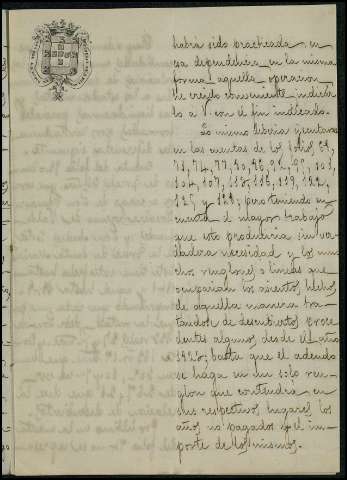 había sido practicada en
esa dependencia en la misma
forma aquella operacion
he creido conveniente indicar
lo a V. con el fin indicado.
Lo mismo debería ejecutarse
en las cuentas de los folios
71, 74, 77,
104, 107, 113, 116, 119, 122,
125 y 128; pero teniendo en
cuenta el mayor trabajo
que esto produciria sin ver
dadera necesidad y los mu
chos renglones o lineas que
ocuparian los asientos hechos
de aquella manera tra
tandose de descubiertos proce
dentes algunos desde el año
basta que el adeudo
se haga en un solo ren
glon que contendrá en
sus respectivos lugares los
años no pagados y el im
porte de los mismos.